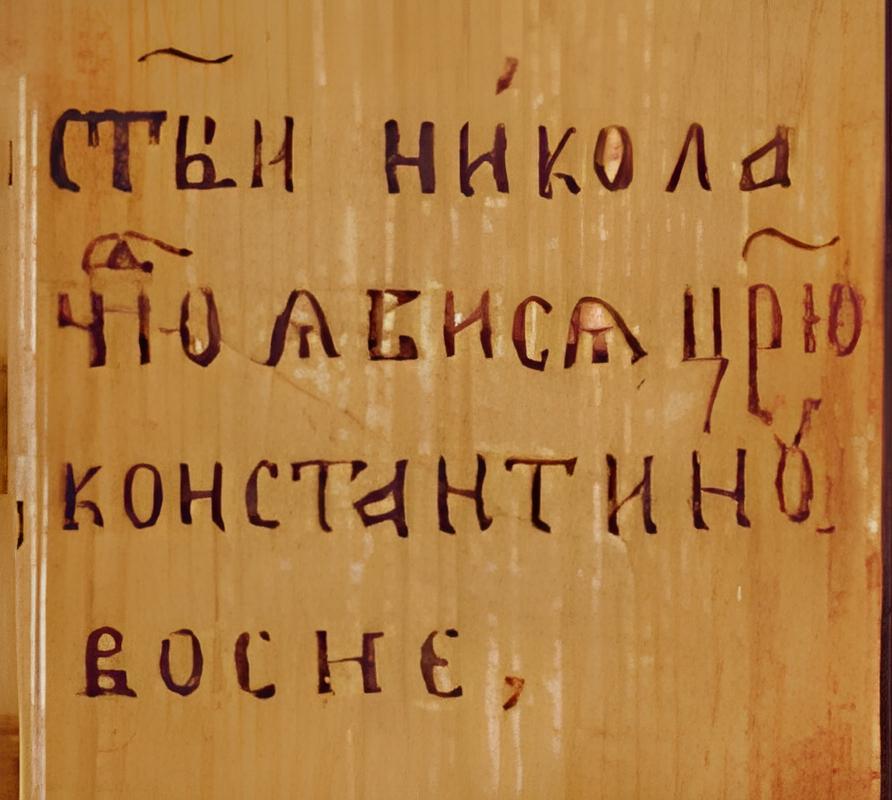 ст҃ъи ни́кола
чюⷣ ѧвисѧ цр҃ю
константинꙋ
восне,